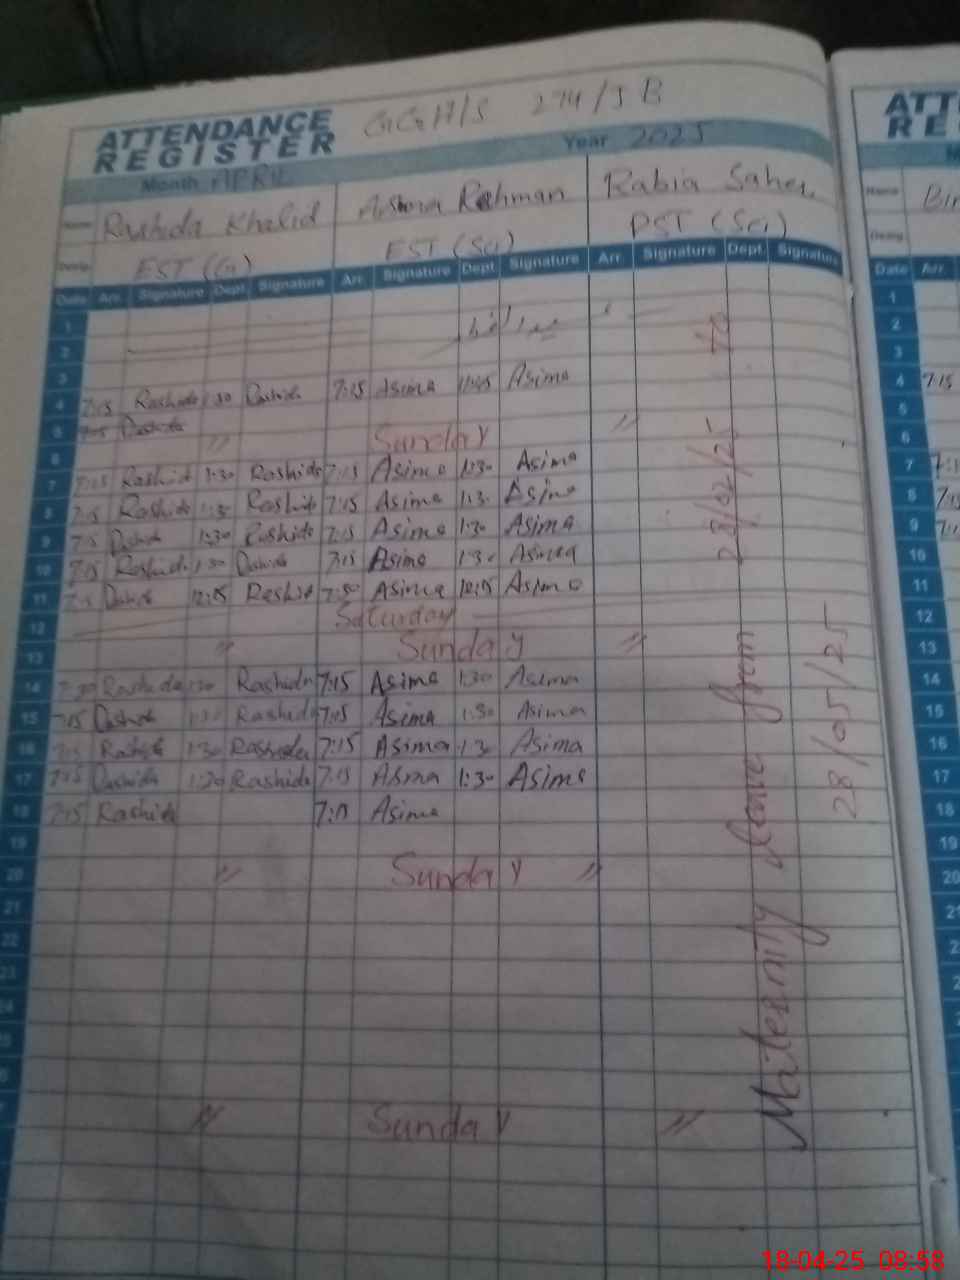 GGH/S 274/JB
ATTENDANCE REGISTER
Month APRIL Year 2025
Name Rashida Khalid Rahman Rabia
Desig. EST (G) EST (Sci) PST (Sci)
Date Arr. Signature Dept. Signature Arr. Signature Dept. Signature Arr. Signature Dept. Signature
1
2
3
4 7:15 Rashida 1:30 7:15 Asima Asima
5 7:15
6 " Sunday "
7 7:15 Rashid 1:30 Rashida 7:15 Asima 1:30 Asima
8 7:15 Rashida 1:30 Rashida 7:15 Asima 1:30 Asima
9 7:15 1:30 Rashida 7:15 Asima 1:30 Asima
10 7:15 Rashida 1:30 7:15 Asima 1:30 Asima
11 12:15 Rashid 7:30 Asima 12:15 Asima
12 Saturday
13 " Sunday "
14 7:30 Rashida 1:30 Rashida 7:15 Asima 1:30 Asima
15 7:15 1:30 Rashida 7:15 Asima 1:30 Asima
16 7:15 Rashida 1:30 Rashida 7:15 Asima 1:30 Asima
17 7:15 1:30 Rashida 7:15 Asima 1:30 Asima
18 7:15 Rashida 7:15 Asima
19
20 " Sunday "
21
22
23
24
" Sunday "
Maternity leave from 28/02/25 to
28/05/25
ATT
RE
Name Bin
Desig.
Date Arr.
1
2
3
4 7:15
5
6
7 7:1
8 7:15
9 7:1
10
11
12
13
14
15
16
17
18
19
20
21
18-04-25 08:58